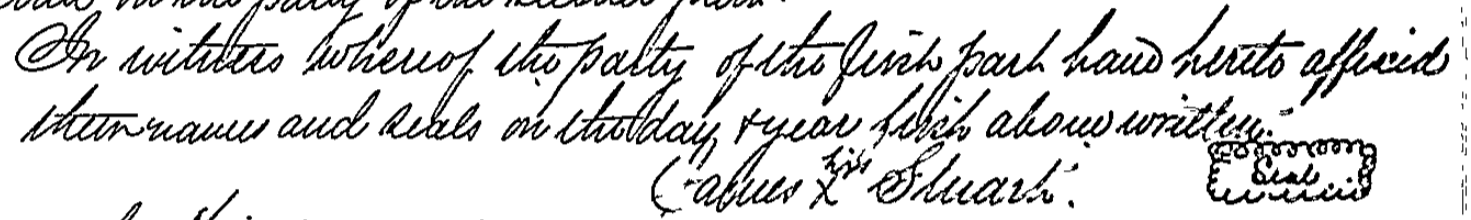 party of the second part.
In witness whereof the party of the first part have hereto affixed
their names and seals on the day & year first above written.
his
James X Stuart. Seal